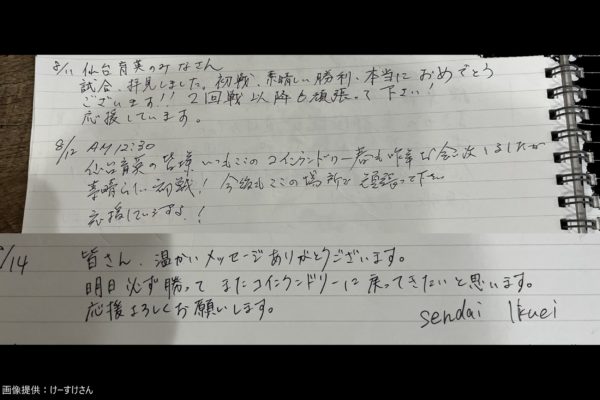 8/11 仙台育英のみなさん
試合、拝見しました。初戦、素晴しい勝利、本当におめでとう
ございます!! 2回戦以降も頑張って下さい!
応援しています。
8/12 AM12:30
仙台育英の皆様 いつもこのコインランドリー
素晴らしい初戦! 今後もここの場所で頑張って下さい
応援しています!
/14 皆さん、温かいメッセージありがとうございます。
明日必ず勝って またコインランドリーに戻ってきたいと思います。
応援よろしくお願いします。
sendai Ikuei
画像提供:けーすけさん